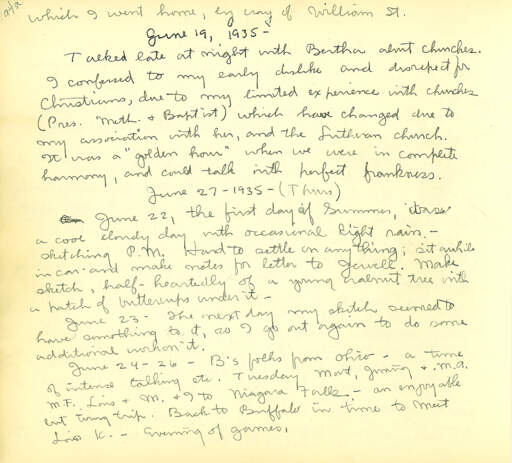 which I went home, by way of William St.
June 19, 1935-
Talked late at night with Bertha about churches.
I confessed to my early dislike and disrespect for
Christians, due to my limited experience with churches
(Pres. Meth. & Baptist) which have changed due to
my association with her, and the Lutheran church.
It was a "golden hour" when we were in complete
harmony, and could talk with perfect frankness.
June 27-1935-(Thurs)
June 22, the first day of Summer, it was
a cool cloudy day with occasional light rains.-
sketching P.M. Hard to settle on anything; sit awhile
in car and make notes for letter to Jewell. Make
sketch, half-heartedly of a young walnut tree with
a patch of buttercups under it -
June 23- The next day my sketch seemed to
have something to it, so I go out again to do some
additional work on it.
June 24-26- B's folks from Ohio - a time
of intense talking etc. Tuesday Mart, & M.A.
M.F. Lois & M. & I to Niagara Falls - an enjoyable
but tiring trip. Back to Buffalo in time to meet
Lois K. - Evening of games.